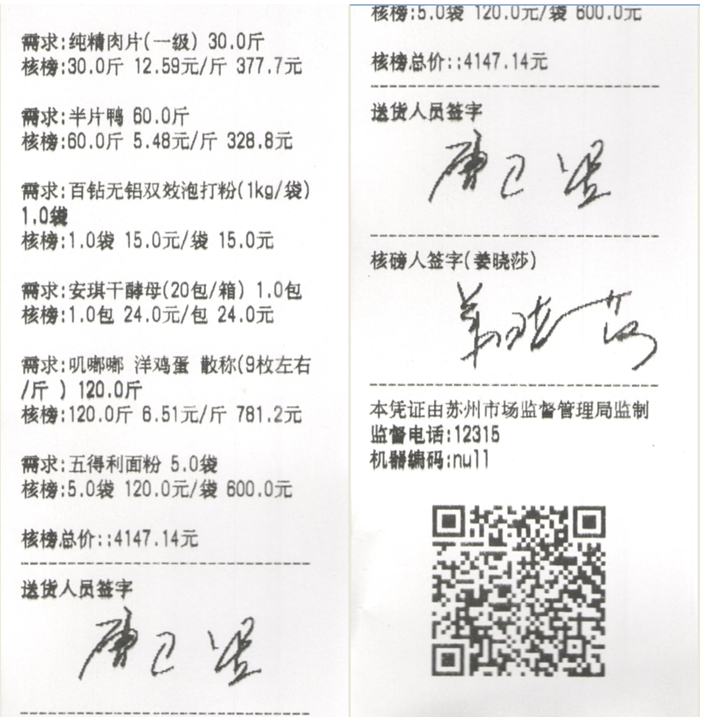 需求:纯精肉片(一级) 30.0斤
核榜:30.0斤 12.59元/斤 377.7元
需求:半片鸭 60.0斤
核榜:60.0斤 5.48元/斤 328.8元
需求:百钻无铝双效泡打粉(1kg/袋)
1.0袋
核榜:1.0袋 15.0元/袋 15.0元
需求:安琪干酵母(20包/箱) 1.0包
核榜:1.0包 24.0元/包 24.0元
需求:叽嘟嘟 洋鸡蛋 散称(9枚左右
/斤 ) 120.0斤
核榜:120.0斤 6.51元/斤 781.2元
需求:五得利面粉 5.0袋
核榜:5.0袋 120.0元/袋 600.0元
核榜总价::4147.14元
送货人员签字
核榜:5.0袋 120.0元/袋 600.0元
核榜总价::4147.14元
送货人员签字
核磅人签字(姜晓莎)
姜晓莎
本凭证由苏州市场监督管理局监制
监督电话:12315
机器编码:null